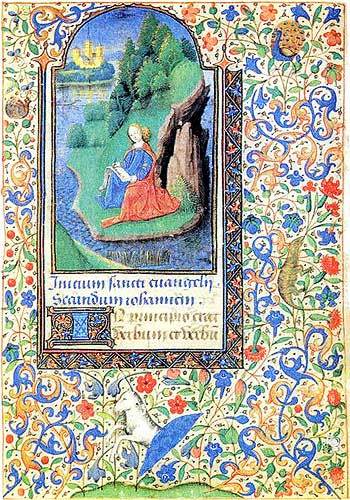 Inicium sancti euangelij
Secundum iohannem.
IN principio erat
verbum et verbū